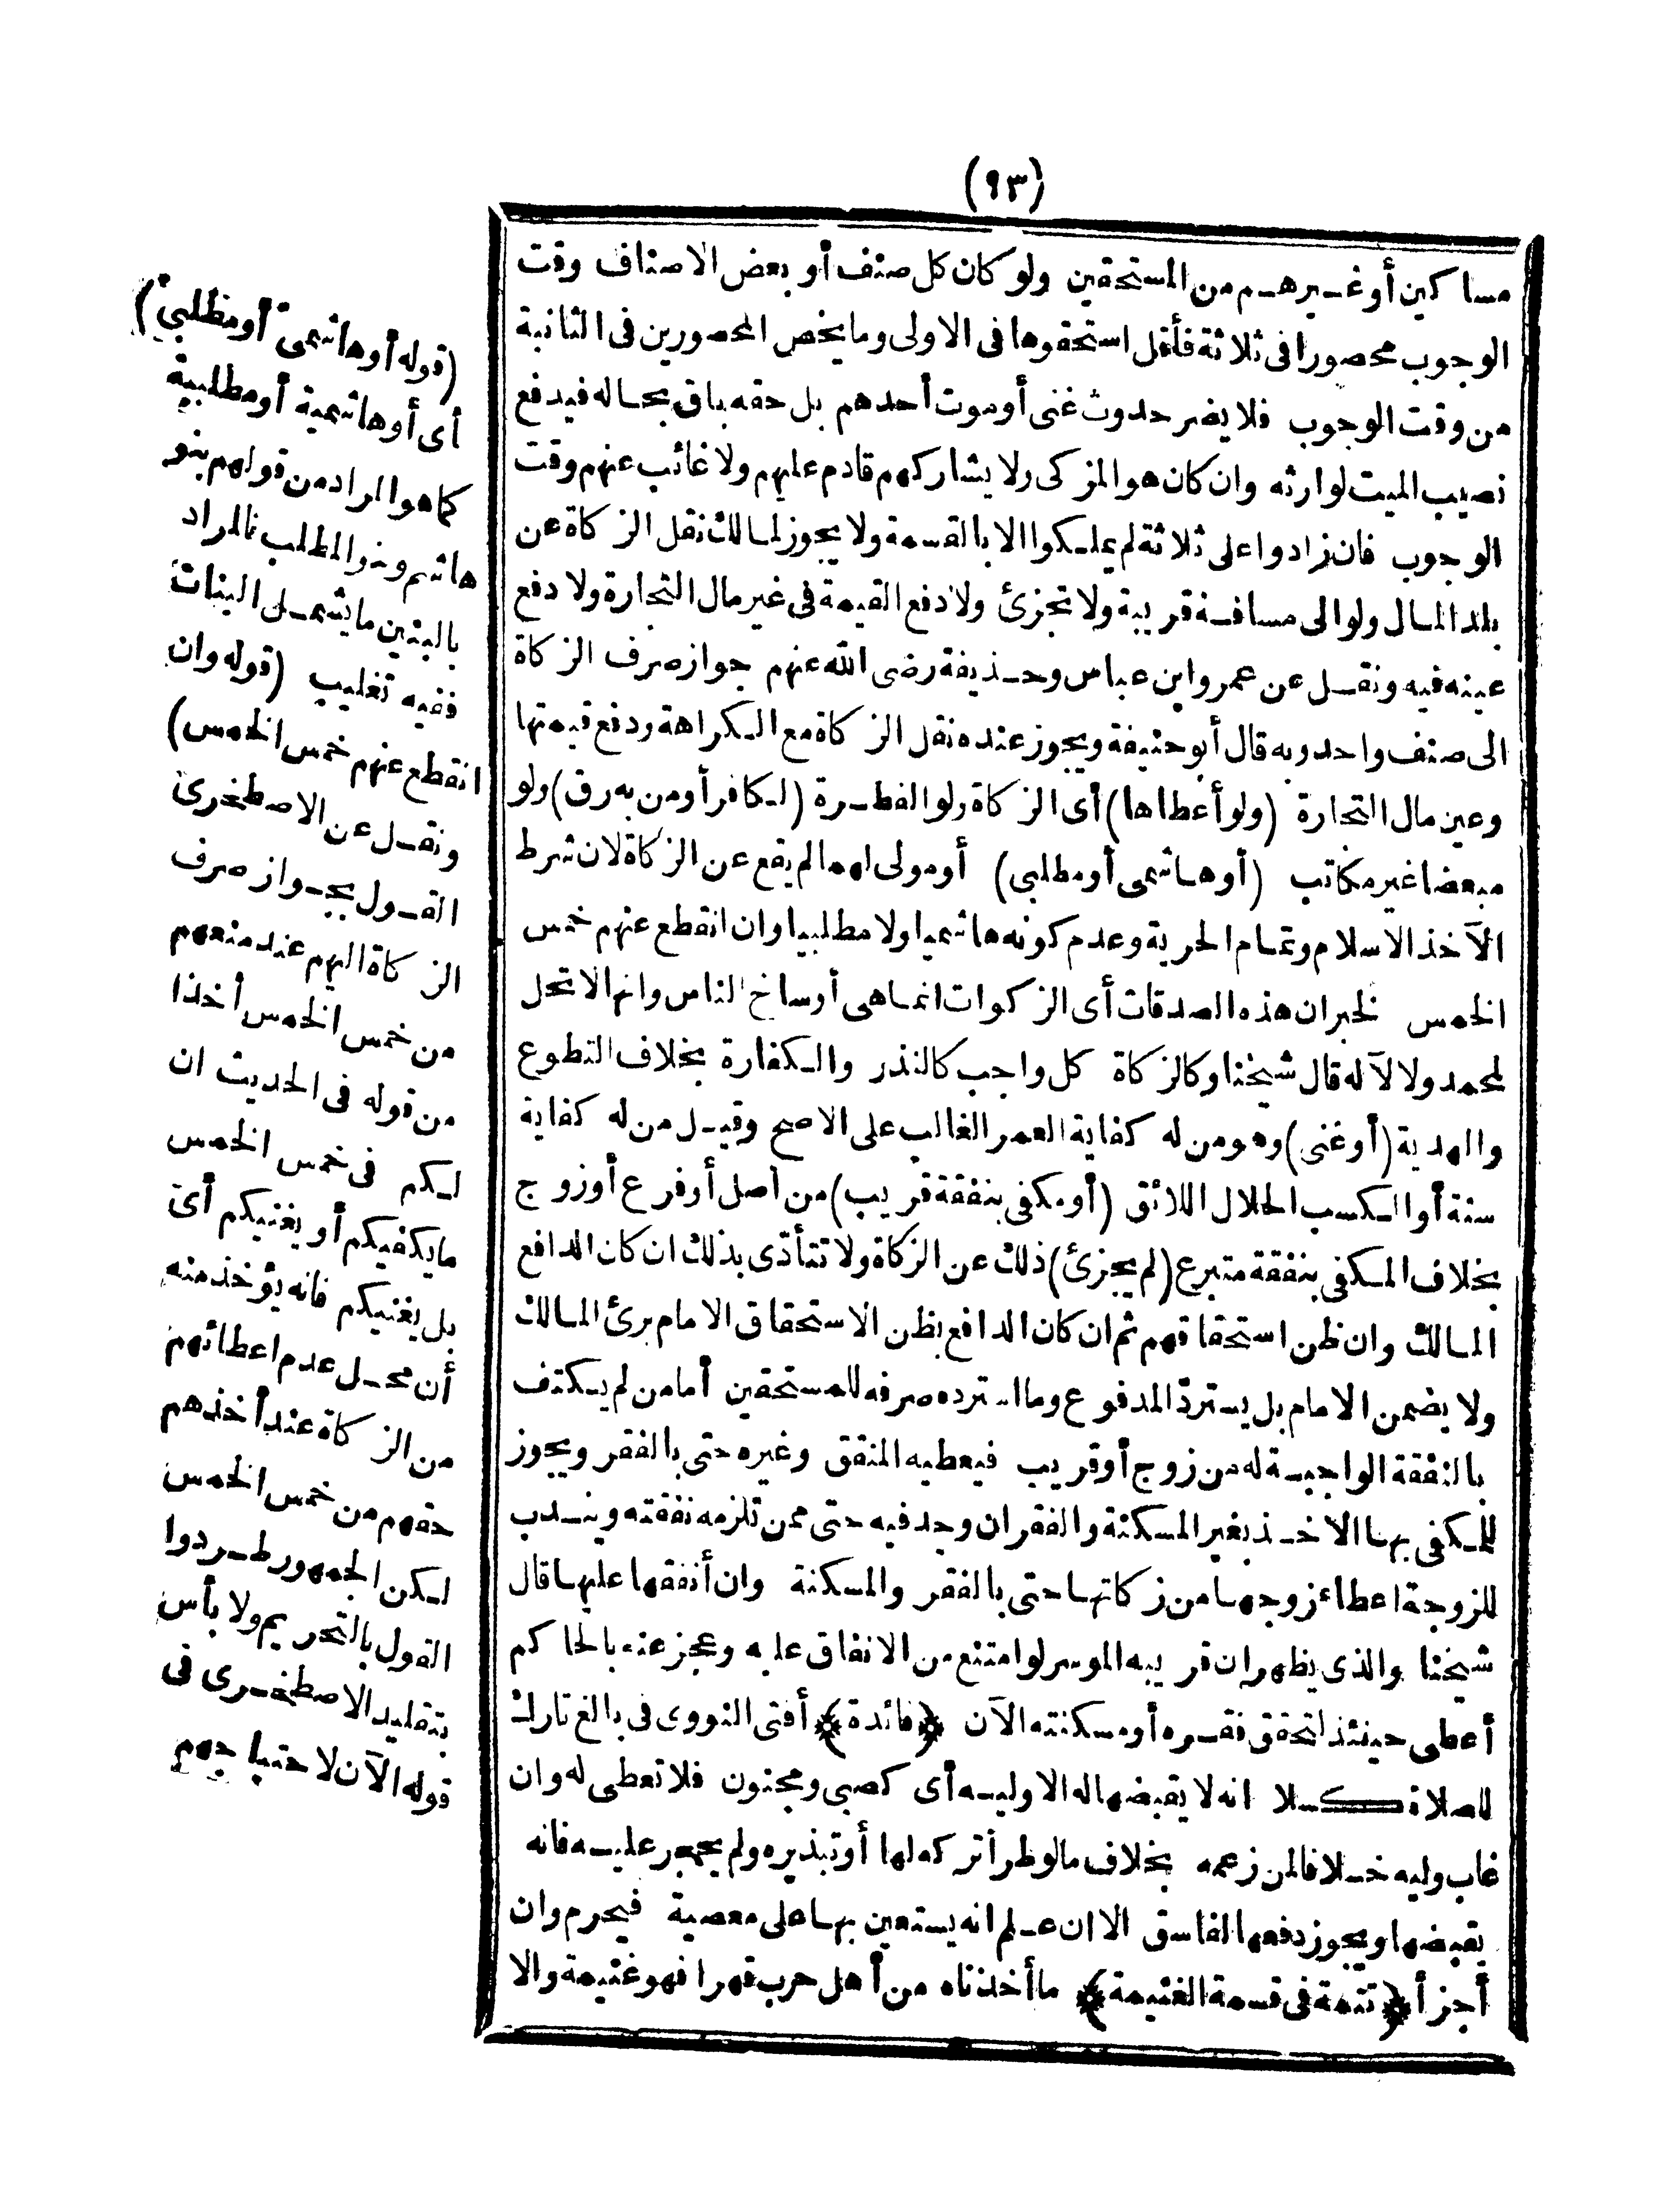 (٩٣)
مساكين أو غيرهم من المستحقين ولو كان كل صنف أو بعض الاصناف وقت
الوجوب محصورا فى ثلاثة فأقل استحقوها فى الاولى وما يخص المحصورين فى الثانية
من وقت الوجوب فلا يضر حدوث غنى أو موت أحدهم بل حقه باق بحاله فيدفع
نصيب الميت لوارثه وان كان هو المزكى ولا يشاركهم قادم عليهم ولا غائب عنهم وقت
الوجوب فان زادوا على ثلاثة لم يملكوا الا بالقسمة ولا يجوز لمالك نقل الزكاة عن
بلد المال ولو الى مسافة قريبة ولا تجزئ ولا دفع القيمة فى غير مال التجارة ولا دفع
عينه فيه ونقل عن عمر وابن عباس وحذيفة رضى الله عنهم جواز صرف الزكاة
الى صنف واحد وبه قال أبو حنيفة ويجوز عنده نقل الزكاة مع الكراهة ودفع قيمتها
وعين مال التجارة (ولو أعطاها) أى الزكاة ولو الفطرة (لكافر أو من به رق) ولو
مبعضا غير مكاتب (أو هاشمى أو مطلبى) أو مولى لهما لم يقع عن الزكاة لان شرط
الآخذ الاسلام وتمام الحرية وعدم كونه هاشميا ولا مطلبيا وان انقطع عنهم خمس
الخمس لخبر ان هذه الصدقات أى الزكوات انما هى أوساخ الناس وانها لا تحل
لمحمد ولا لآله قال شيخنا وكالزكاة كل واجب كالنذر والكفارة بخلاف التطوع
والهدية (أو غنى) وهو من له كفاية العمر الغالب على الاصح وقيل من له كفاية
سنة أو الكسب الحلال اللائق (أو مكفى بنفقة قريب) من أصل أو فرع أو زوج
بخلاف المكفى بنفقة متبرع (لم يجزئ) ذلك عن الزكاة ولا تتأدّى بذلك ان كان الدافع
المالك وان ظن استحقاقهم ثم ان كان الدافع بظن الاستحقاق الامام برئ المالك
ولا يضمن الامام بل يستردّ المدفوع وما استرده صرفه للمستحقين أما من لم يكتف
بالنفقة الواجبة له من زوج أو قريب فيعطيه المنفق وغيره حتى بالفقر ويجوز
للمكفى بها الاخذ بغير المسكنة والفقر ان وجد فيه حتى ممن تلزمه نفقته ويندب
للزوجة اعطاء زوجها من زكاتها حتى بالفقر والمسكنة وان أنفقها عليها قال
شيخنا والذى يظهر ان قريبه الموسر لو امتنع من الانفاق عليه وعجز عنه بالحاكم
أعطى حينئذ لتحقق فقره أو مسكنته الآن ﴿فائدة﴾ أفتى النووى فى بالغ تارك
للصلاة كسلا انه لا يقبضها له الا وليه أى كصبى ومجنون فلا تعطى له وان
غاب وليه خلافا لمن زعمه بخلاف ما لو طرأ تركه لها أو تبذيره ولم يحجر عليه فانه
يقبضها ويجوز دفعها لفاسق الا ان علم انه يستعين بها على معصية فيحرم وان
أجزأ ﴿تتمة فى قسمة الغنيمة﴾ ما أخذناه من أهل حرب قهرا فهو غنيمة والا
(قوله أو هاشمى أو مطلبى)
أى أو هاشمية أو مطلبية
كما هو المراد من قولهم بنو
هاشم وبنو المطلب فالمراد
بالبنين ما يشمل البنات
ففيه تغليب (قوله وان
انقطع عنهم خمس الخمس)
ونقل عن الاصطخرى
القول بجواز صرف
الزكاة اليهم عند منعهم
من خمس الخمس أخذا
من قوله فى الحديث ان
لكم فى خمس الخمس
ما يكفيكم أو يغنيكم أى
بل يغنيكم فانه يؤخذ منه
أن محل عدم اعطائهم
من الزكاة عند أخذهم
حقهم من خمس الخمس
لكن الجمهور طردوا
القول بالتحريم ولا بأس
بتقليد الاصطخرى فى
قوله الآن لاحتياجهم